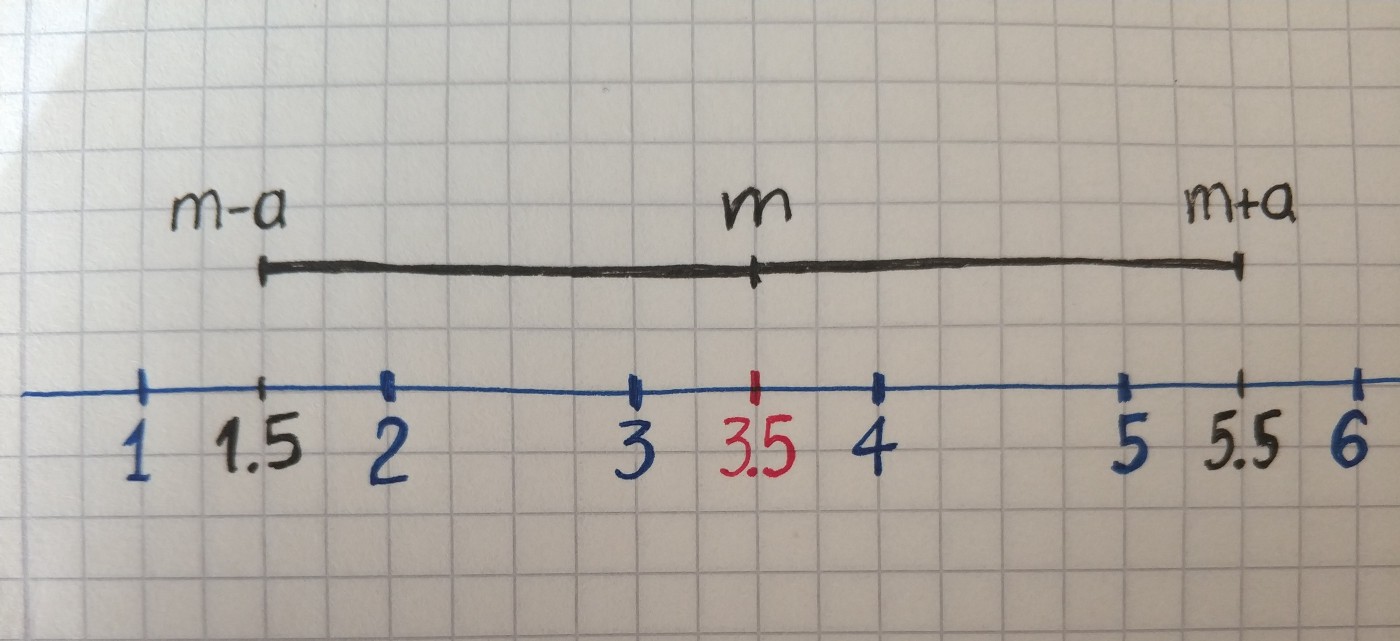 m-a m m+a
1 1.5 2 3 3.5 4 5 5.5 6